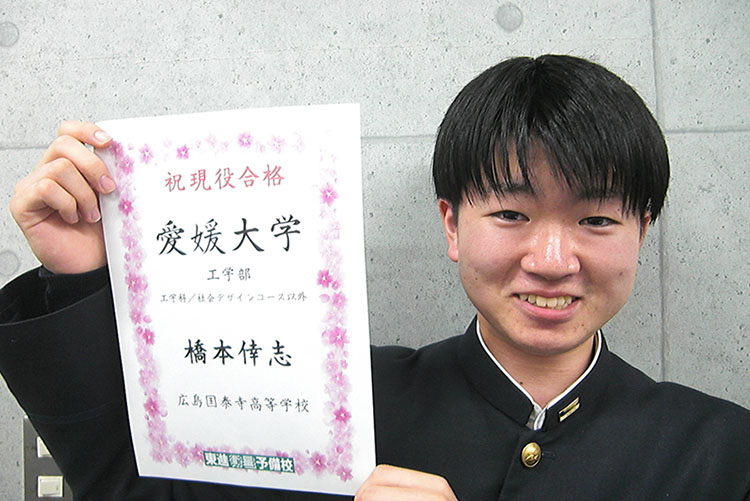 祝現役合格
愛媛大学
工学部
工学科/社会デザインコース以外
橋本倖志
広島国泰寺高等学校
東進衛星予備校